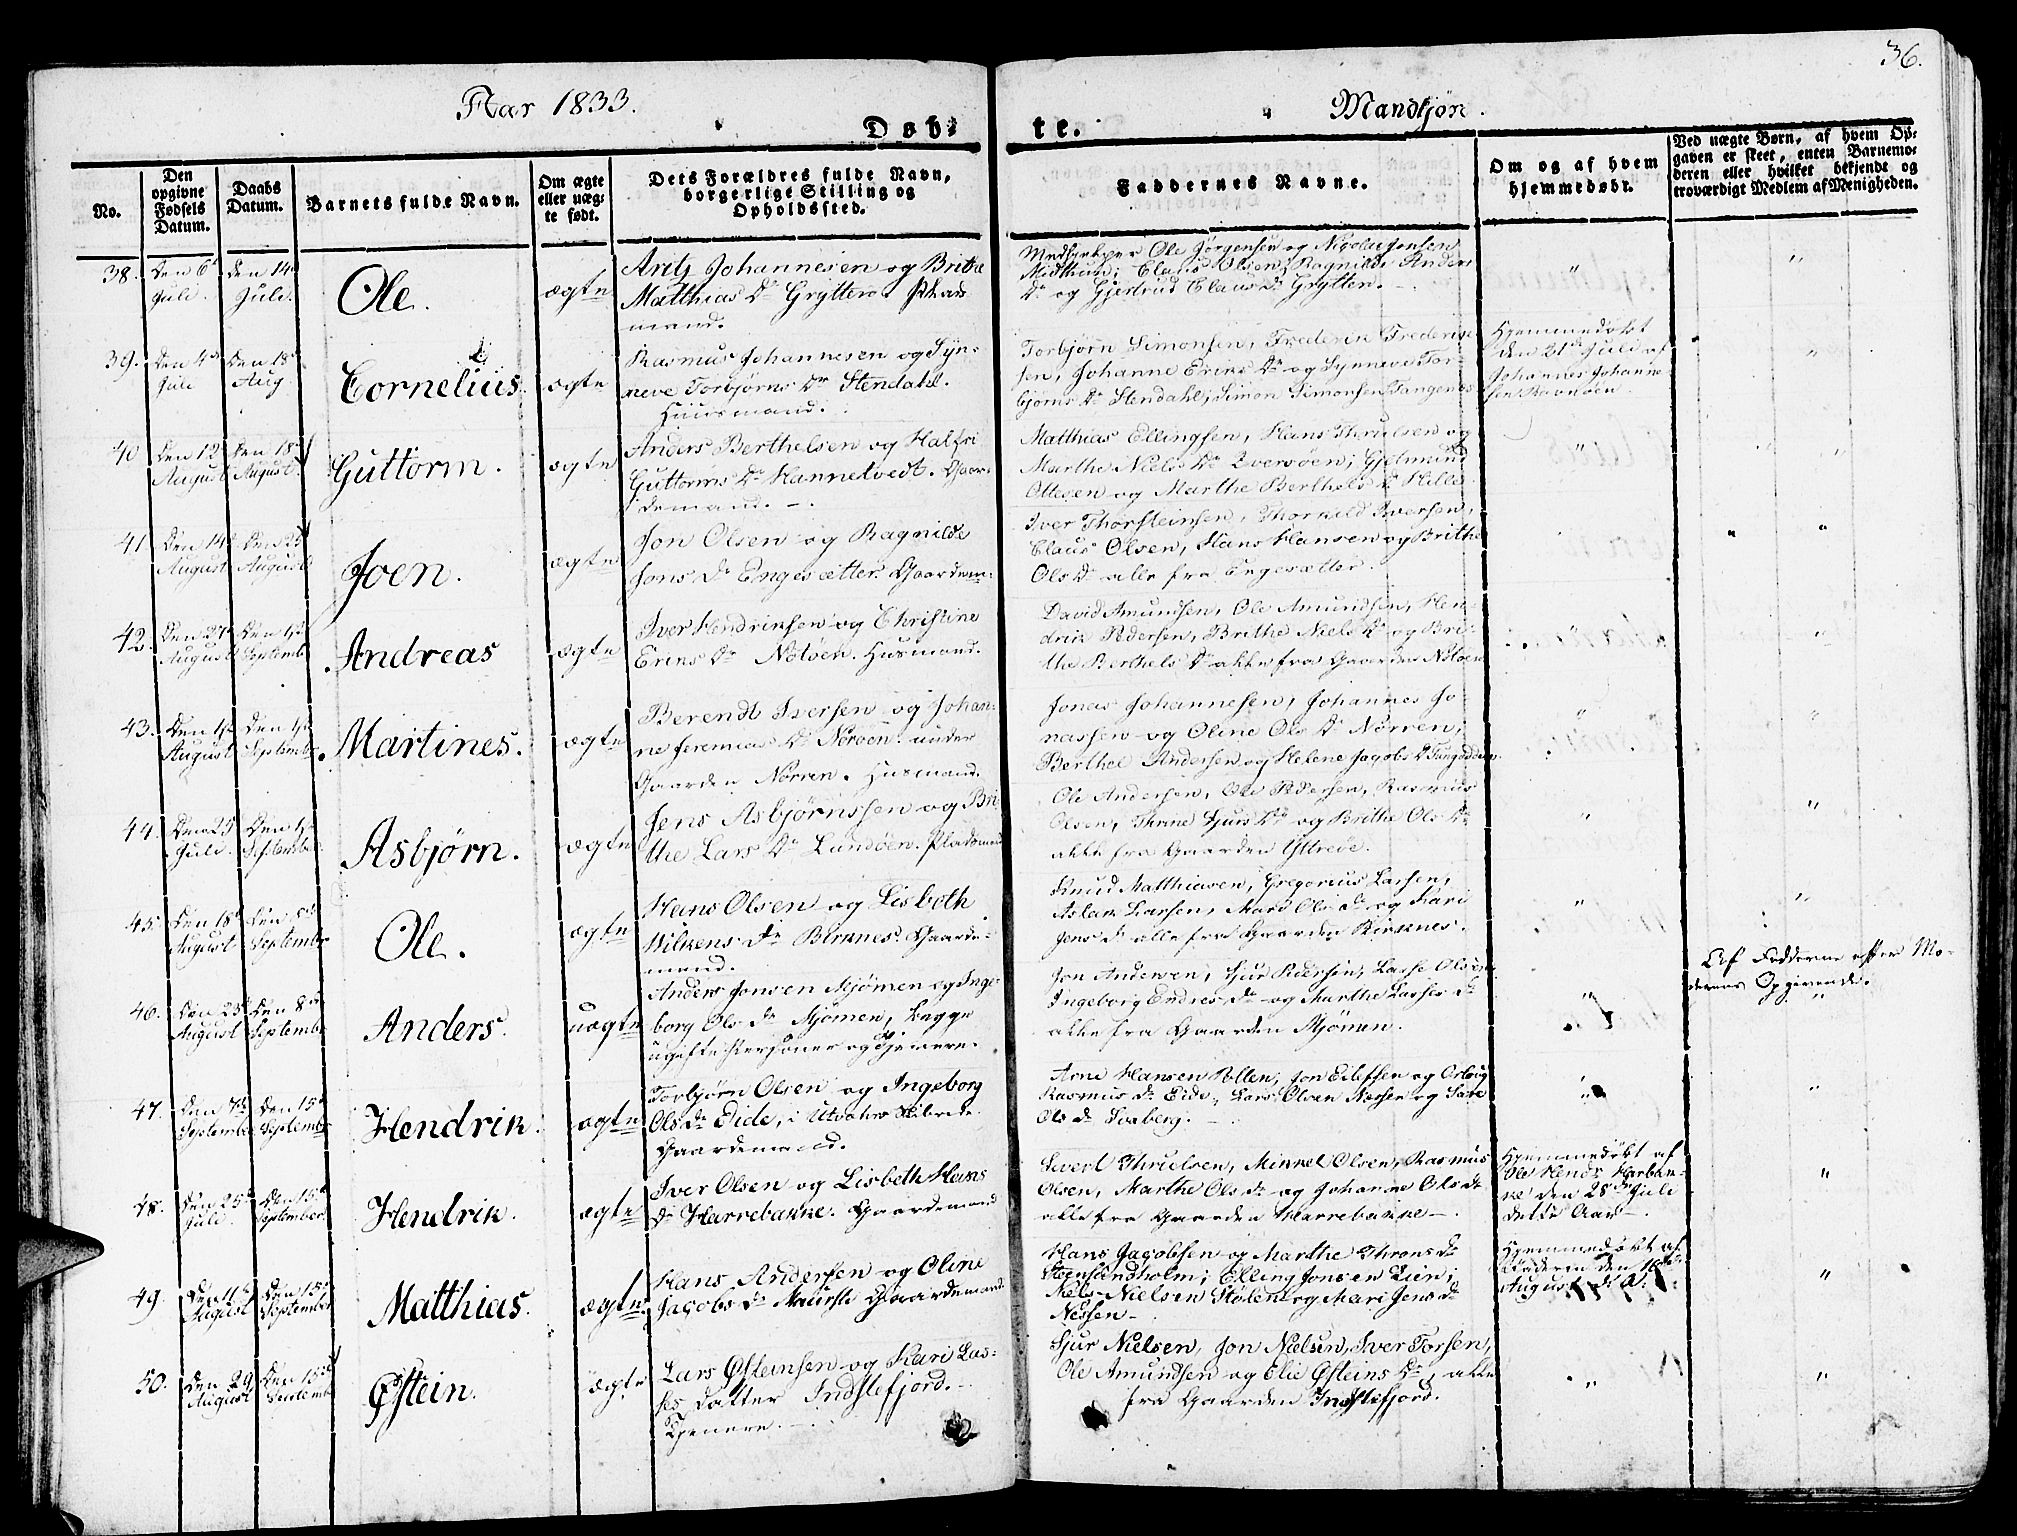 36.
Aar 1833.
Mandkjøn.
Døb-
te.
No.
Den opgivne Fødsels Datum.
Daabs Datum.
Barnets fulde Navn.
Om ægte eller uægte født.
Dets Forældres fulde Navn, borgerlige Stilling og Opholdssted.
Faddernes Navne.
Om og af hvem hjemmedøbt.
Ved uægte Børn, af hvem Opgaven er skeet, enten Barnemoderen eller hvilket bekjendt og troværdigt Medlem af Menigheden.
38. Den 6te Juli. Den 14de Juli. Ole. ægte
Johannesen og Brite
Matthias Dr Grytten. Plads
mand.
Ole Jørgensen og Nicolai Jensen
Midthun; Claus Olsen, Ragnilde Anders
Dr og Gjertrud Claus Dr Grytten.
39. Den 4de Juli Den 18de Aug Cornelius. ægte
Rasmus Johannesen og Syn-
neve Torbjørns Dr Stendahl.
Huusmand.
Torbjørn Simonsen, Frederik Frederik-
sen, Johanne Eriks Dr og Synneve Tor-
bjørns Dr Stendahl, Simon Simonsen Tangenes
Hjemmedøbt
den 21de Juli af
Johannes Johanne-
sen Ravnøen
40 Den 12 August Den 18de August Guttorm. ægte
Anders Berthelsen og Halfri
Guttorms Dr Hannekvedt. Gaar-
demand.
Matthias Ellingsen, Hans Thrulsen og
Marthe Niels Dr Iversøen; Gjelmund
Ottesen og Marthe Berthels Dr Hille.
41 Den 14de August Den 25de August Joen. ægte
Jon Olsen og Ragnilde
Jons Dr Engesætter. Gaardem:
Iver Thorsteinsen, Thorkild Iversen,
Claus Olsen, Hans Hansen og Brithe
Ols Dr alle fra Engesætter.
42. Den 27de August Den 1ste September Andreas ægte
Iver Hendriksen og Christine
Eriks Dr Notøen. Husmand.
David Amundsen, Ole Amundsen, Hen-
drik Pedersen, Brithe Niels Dr og Bri-
the Berthels Dr alle fra Gaarden Notøen
43. Den 1ste August Den 1ste September Martines. ægte
Berendt Iversen og Johan-
ne Jeremias Dr Norøen under
Gaarden Norren. Husmand.
Jonas Johannesen, Johannes Jo-
nassen og Oline Ols Dr Norren,
Berthel Andersen og Helene Jacobs Dr
44. Den 25 Juli. Den 1ste September Asbjørn. ægte
Jens Asbjørnssen og Bri
the Lars Dr Lundøen. Pladsmand
Ole Andersen, Ole Pedersen, Rasmus
Olsen, Thrine Sjurs Dr og Brithe Ols Dr
alle fra Gaarden Yttrede.
45. Den 18de August Den 8de September Ole. ægte
Hans Olsen og Lisbeth
Wilkens Dr Birknes. Gaarde-
mand.
Knud Matthiasen, Gregorius Larsen,
Aslak Larsen, Mari Ols Dr og Kari
Jens Dr alle fra Gaarden Birknes.
46. Den 25de August Den 8de September Anders. uægte
Anders Jonsen Mjømen og Inge-
borg Ols Dr Mjømen, begge
ugifte Personer og Tjenere.
Jon Andersen, Sjur Pedersen, Lasse Olsen,
Ingeborg Endres Dr og Marthe Lasses Dr
alle fra Gaarden Mjømen.
Af Fadderne efter Mo-
derens Opgivende.
47. Den 7de September Den 15de September Hendrik. ægte
Torbjørn Olsen og Ingeborg
Ols Dr Eide, i Utvahr Skibrede.
Gaardemand.
Arne Hansen Pollen, Jon Eilefsen og
Rasmus Dr Eide, Lars Olsen Nessen og
Ols Dr Svaberg.
48. Den 25de Juli. Den 15de September Hendrik. ægte
Iver Olsen og Lisbeth Hans
Dr Harrebakke. Gaardemand
Sivert Thrulsen, Mikkel Olsen, Rasmus
Olsen, Marthe Ols Dr og Johanne Ols Dr
alle fra Gaarden Harrebakke.
Hjemmedøbt af
Ole Hendr: Harbak-
ke den 28de Juli
dette Aar.
49. August Den 15de September Matthias. ægte
Hans Andersen og Oline
Jacobs Dr Gaardemand
Hans Jacobsen og Marthe Throns Dr
Steensundholm; Elling Jonsen Lien;
Niels Nielsen Stølen og Mari Jens Dr
Nessen
Hjemmedøbt af
Faderen den
August
50. Den 29 August Den 15de September Østein. ægte
Lars Østeinsen og Kari Las-
ses Datter Indstefjord.
Tjenere.
Sjur Nielsen, Jon Nielsen, Iver Torsen,
Ole Amundsen og Elie Østeins Dr, alle
fra Gaarden Indstefjord.